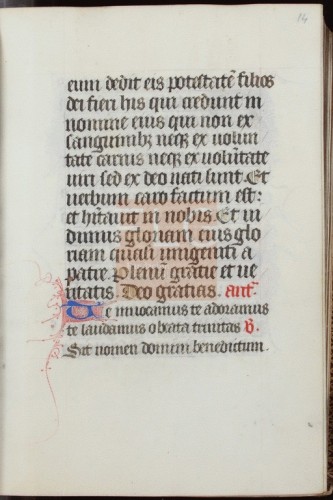 14
eum dedit eis potestatē filios
dei fieri his qui credunt in
nomine eius qui non ex
sanguinibꝫ neqꝫ ex volun
tate carnis neqꝫ ex volūtate
uiri sed ex deo nati sunt. Et
verbum caro factum est:
et hītauit in nobis. Et ui
dimus gloriam eius glo
riam quasi unigeniti a
patre. Plenū gratie et ue
ritatis. Deo gratias. ant̄.
Te inuocamus te adoramus
te laudamus o beata trinitas ℟.
Sit nomen domini benedictum.